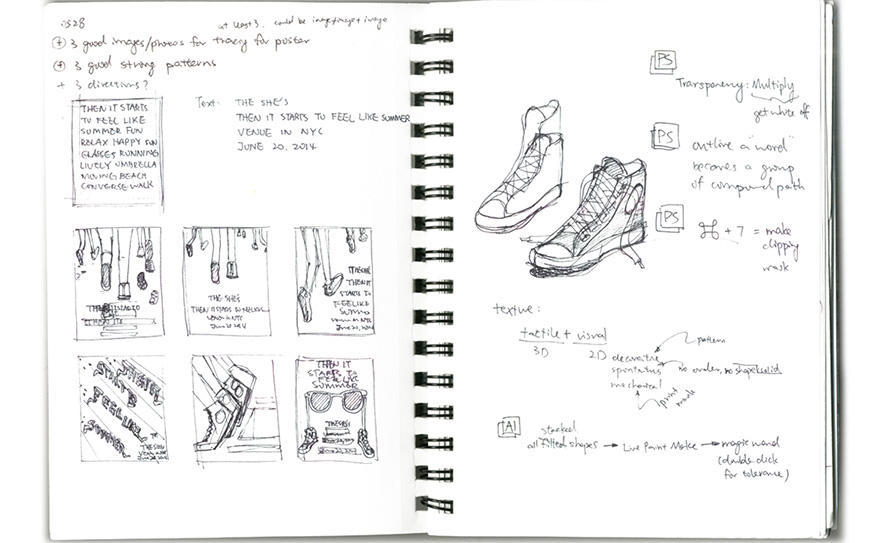 at least 3. could be image+image+image
3 good images/photos for tracing for poster
3 good strong patterns
+ 3 directions?
THEN IT STARTS
TO FEEL LIKE
SUMMER FUN
RELAX HAPPY FUN
GLASSES RUNNING
LIVELY UMBRELLA
MOVING BEACH
CONVERSE WALK
Text: THE SHE'S
THEN IT STARTS TO FEEL LIKE SUMMER
VENUE IN NYC
JUNE 20, 2014
THE SHE'S
THEN IT STARTS TO FEEL LIKE
VENUE IN NYC
June 20 2014
THE SHE
THEN IT
STARTS TO
FEEL LIKE
SUMME
VENUE IN NYC
June 20, 2014
STARTS
FEEL LIKE
SUMMER
THE SHES
VENUE IN NYC
June 20, 2014
THEN IT
STARTS TO
FEEL LIKE
SUMMER
THE SHE'S
PS
Transparency: Multiply
get white off
PS
outline a "word"
becomes a group
of compound path
PS
⌘ + 7 = make
clipping
mask
texture:
tactile + visual
3D 2D
decorative
pattern
spontaneous
no order, no shape&solid
mechanical
print
made
AI
stacked
all filled shapes → Live Paint Make → magic wand
(double click
for tolerance)